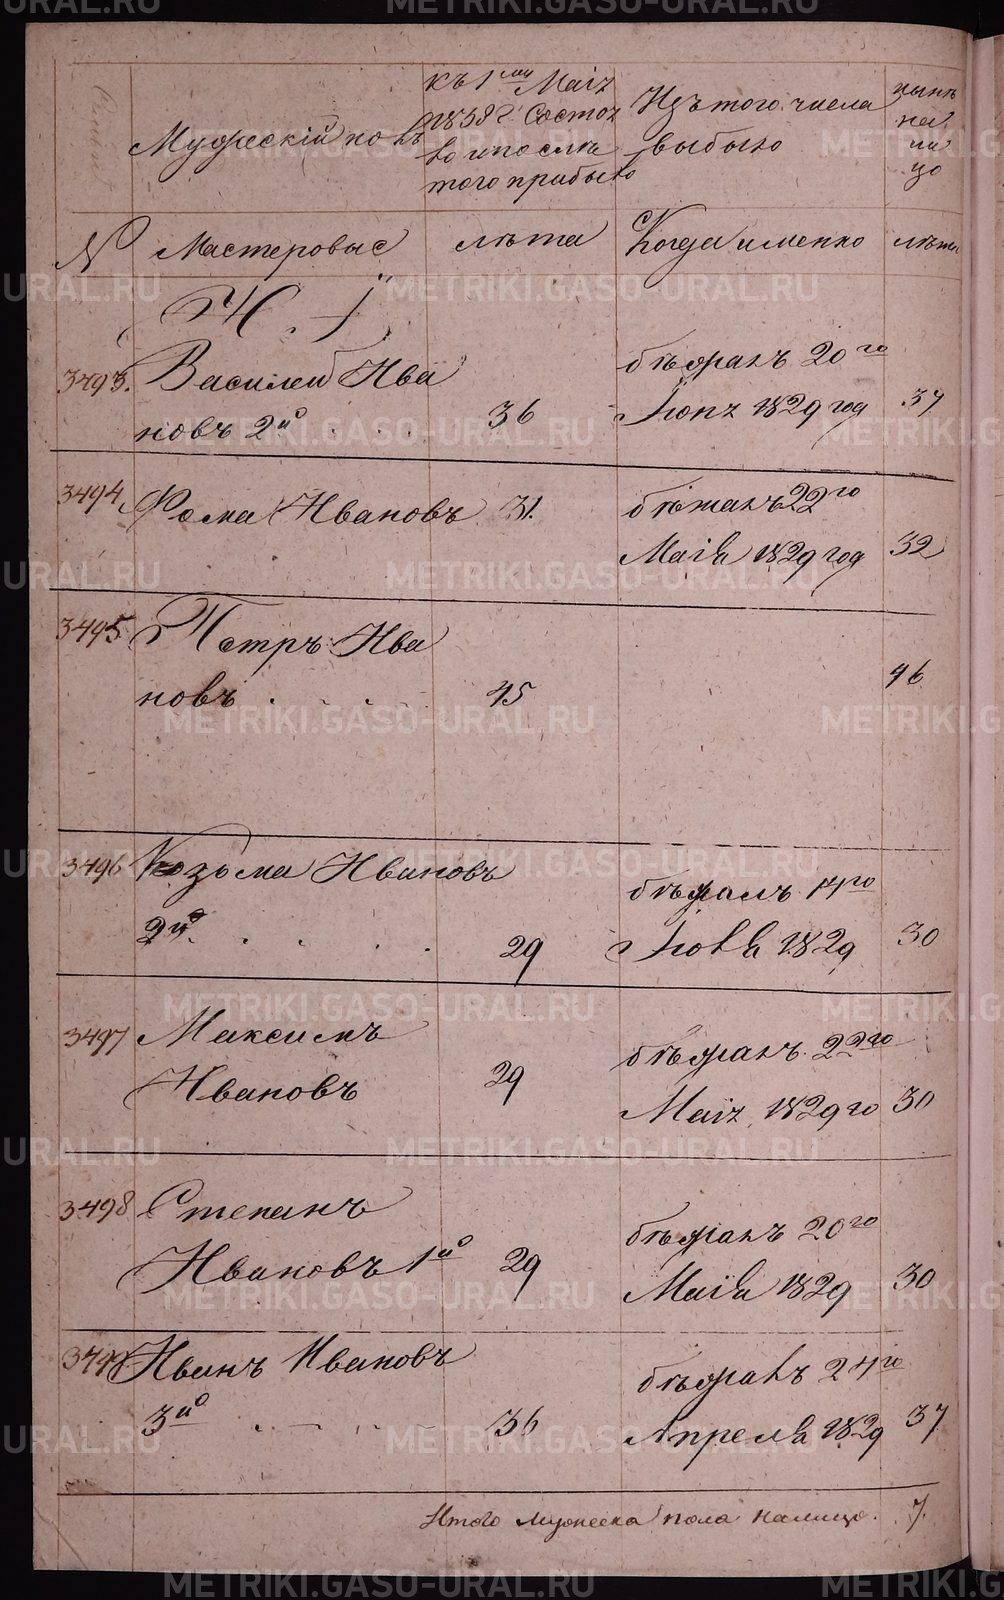 Мужескій полъ
къ 1му Маія 1858 г. состоя
ло и после того прибыло
Изъ того числа выбыло
нынѣ на лицо
№ Мастеровые лѣта Когда именно лѣта
И. j
3493. Василей Ива
новъ 2й . . . 36
бѣжалъ 20го
Іюня 1829 год 37
3494 Фома Ивановъ 31.
бѣжалъ 22го
Маія 1829 год 32
3495 Петръ Ива
новъ . . . . 45 46
3496 Козьма Ивановъ
2й. . . . . 29
бѣжалъ 14го
1829 30
3497 Максимъ
Ивановъ 29
бѣжалъ 22го
Маія 1829 го 30
3498 Степанъ
Ивановъ 1й 29
бѣжалъ 20го
Маія 1829 30
Иванъ Ивановъ
3й . . . . 36
бѣжалъ 24го
Апреля 1829 37
Итого мужеска пола налицо. 7.
METRIKI.GASO-URAL.RU